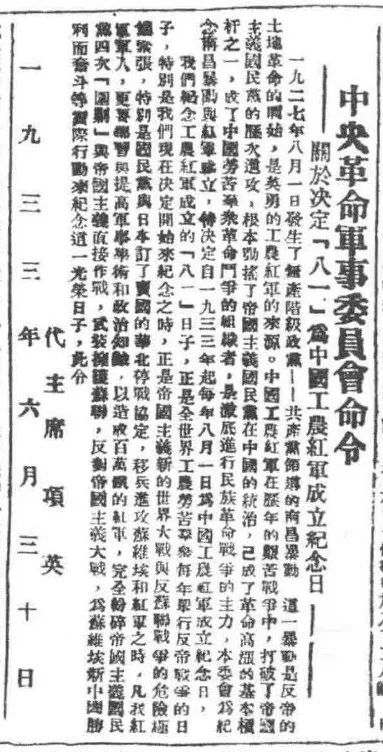 中央革命軍事委員會命令
——關於決定「八一」爲中國工農紅軍成立紀念日——
一九二七年八月一日發生了無產階級政黨——共產黨領導的南昌暴動 這一暴動是反帝的
土地革命的開始，是英勇的工農紅軍的來源。中國工農紅軍在歷年的艱苦戰爭中，打破了帝國
主義國民黨的歷次進攻，根本動搖了帝國主義國民黨在中國的統治，已成了革命高漲的基本槓
杆之一，成了中國勞苦羣衆革命鬥爭的組織者，是澈底進行民族革命戰爭的主力，本委會爲紀
念南昌暴動與紅軍成立，特決定自一九三三年起每年八月一日爲中國工農紅軍成立紀念日，
我們紀念工農紅軍成立的「八一」日子，正是全世界工農勞苦羣衆每年舉行反帝戰爭的日
子，特別是我們現在決定開始來紀念之時，正是帝國主義新的世界大戰與反蘇聯戰爭的危險極
緊張，特別是國民黨與日本訂了賣國的華北停戰協定，移兵進攻蘇維埃和紅軍之時，凡我紅
軍軍人，更要學習與提高軍事學術和政治知識，以造成百萬鐵的紅軍，完全粉碎帝國主義國民
黨四次「圍剿」與帝國主義直接作戰，武裝擁護蘇聯，反對帝國主義大戰，爲蘇維埃新中國勝
利而奮斗等實際行動來紀念這一光榮日子，此令
代主席 項英
一九三三年六月三十日